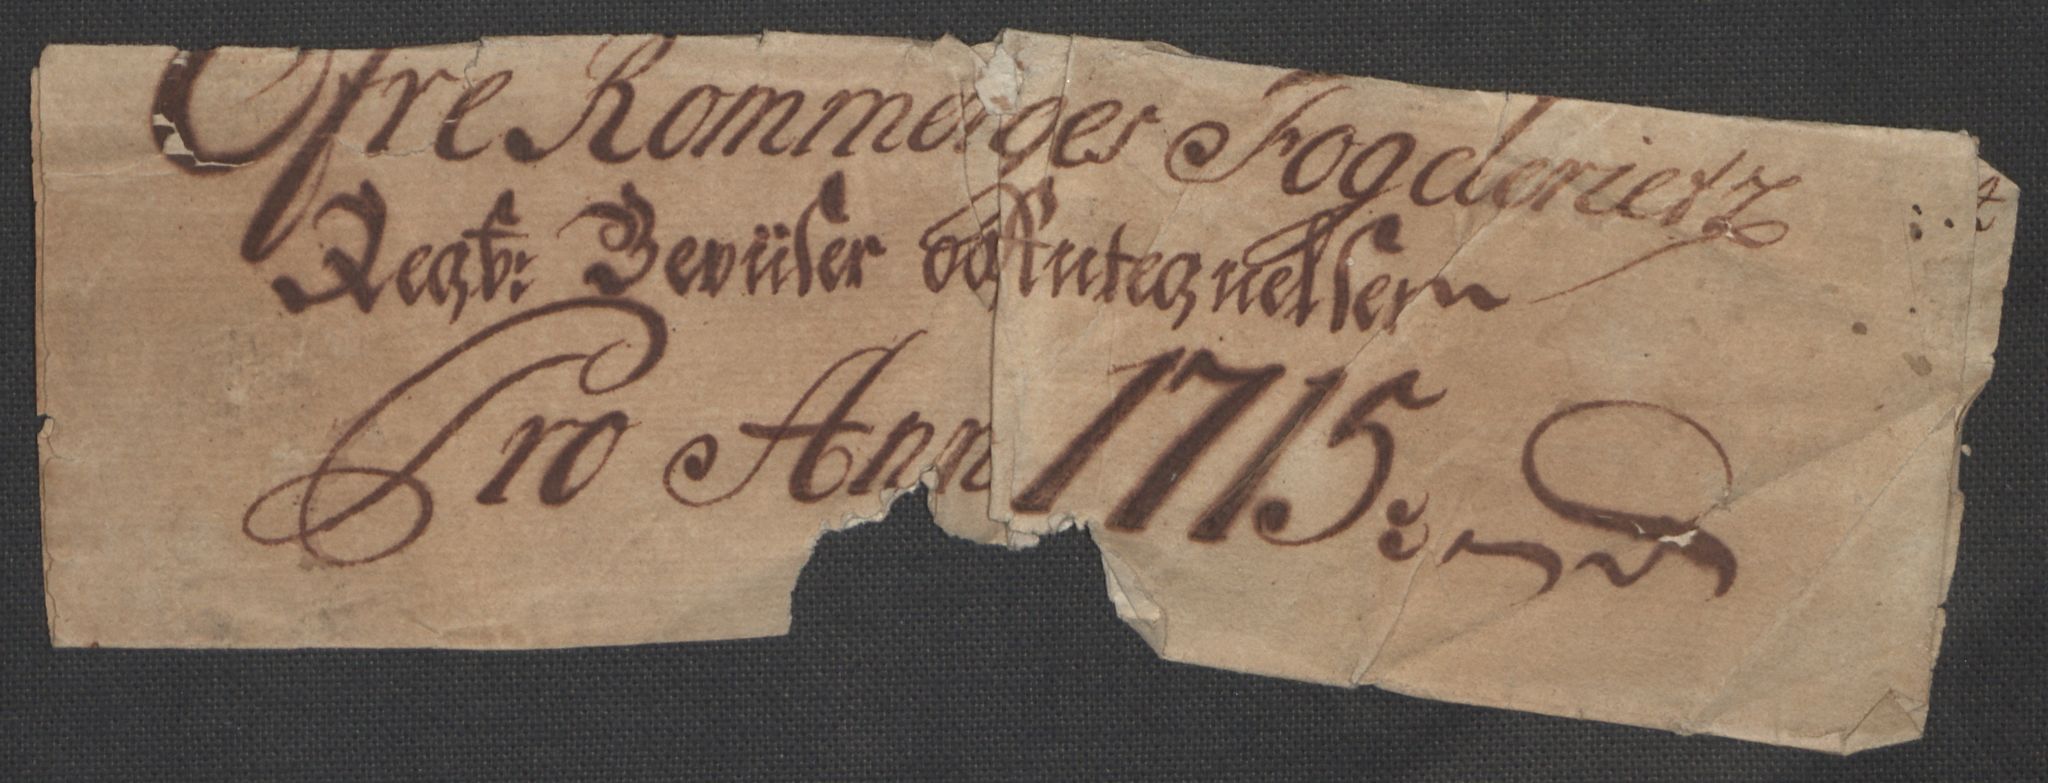 Øfre Rommeriges Fogderietz
Regb: Bevüser og Antegnelser
Pro Ann 1715: